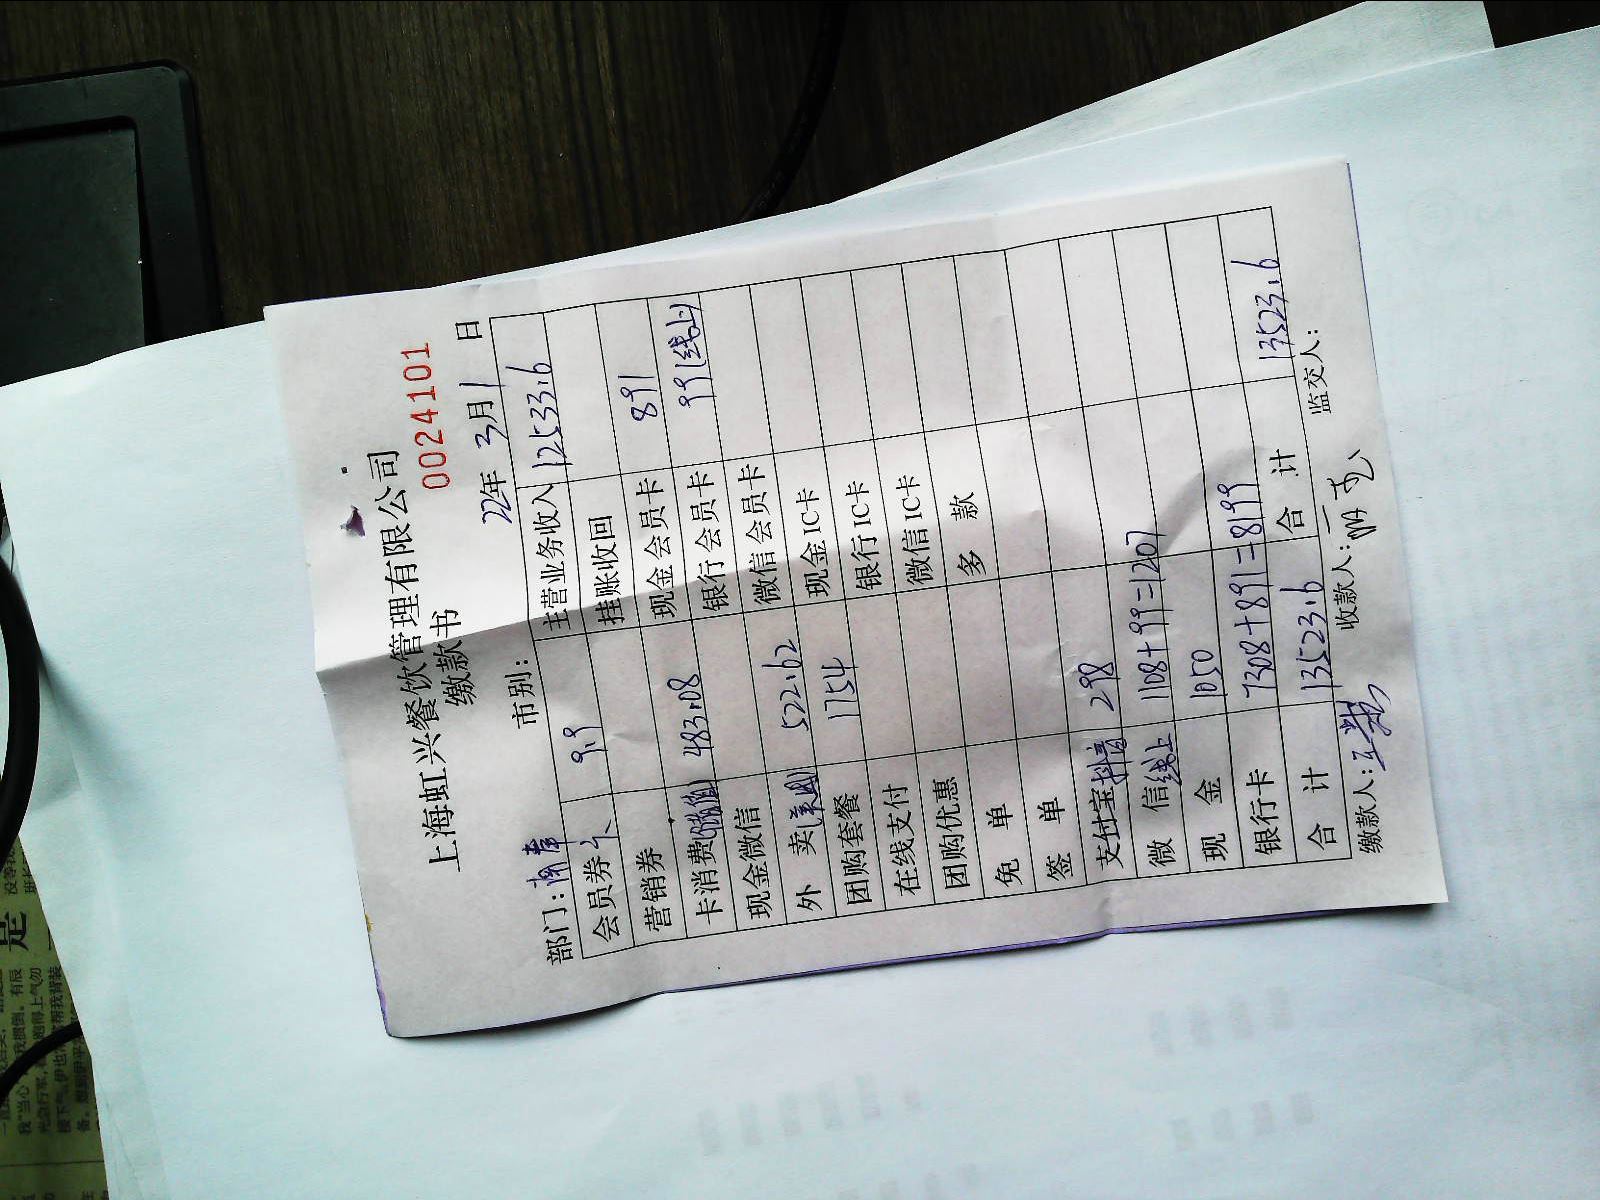 上海虹兴餐饮管理有限公司
缴款书
0024101
部门: 市别: 22年 3月 1 日
会员券 9.9 主营业务收入 12533.6
营销券 挂账收回
卡消费 483.08 现金会员卡 891
现金微信 银行会员卡 99(线上)
外 卖(美团) 522.62 微信会员卡
团购套餐 1754 现金IC卡
在线支付 银行IC卡
团购优惠 微信IC卡
免 单 多 款
签 单
支付宝抖音 298
微 信线上 1108+99=1207
现 金 1050
银行卡 7308+891=8199
合 计 13523.6 合 计 13523.6
缴款人: 收款人: 监交人: